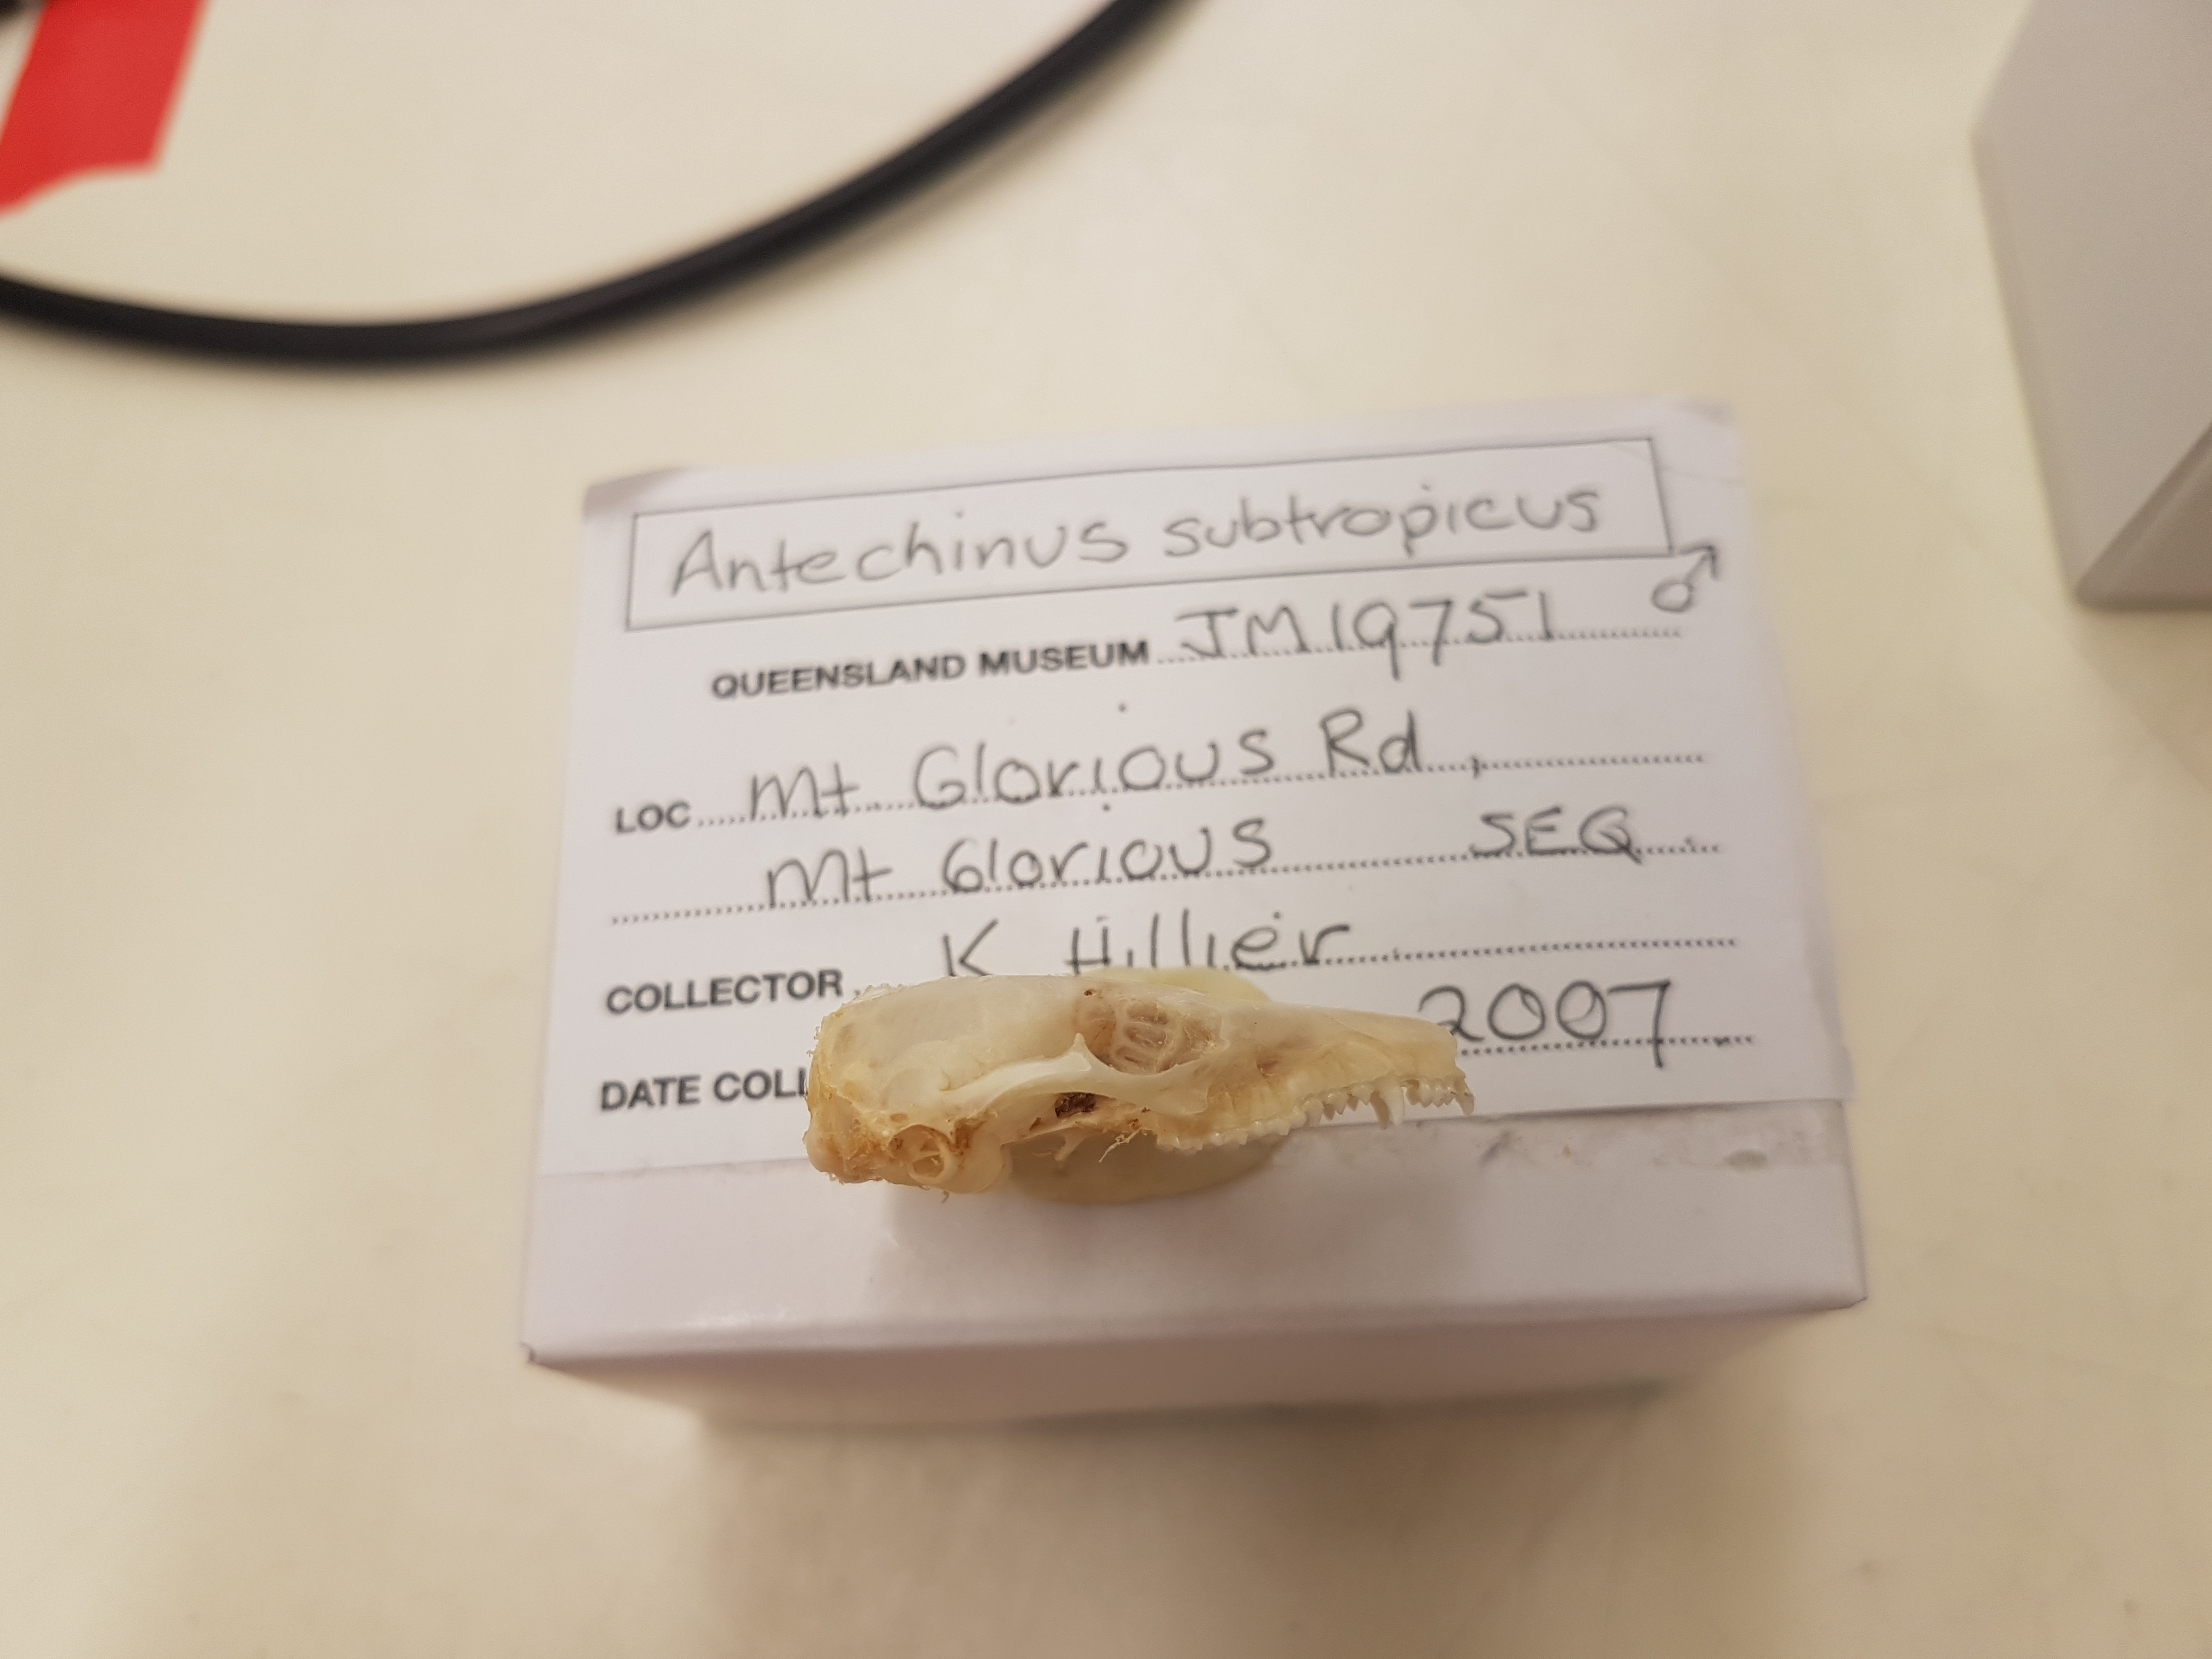 Antechinus subtropicus
QUEENSLAND MUSEUM JM19751 ♂
LOC Mt Glorious Rd,
Mt Glorious SEQ
COLLECTOR K Hillier
DATE COLL 2007